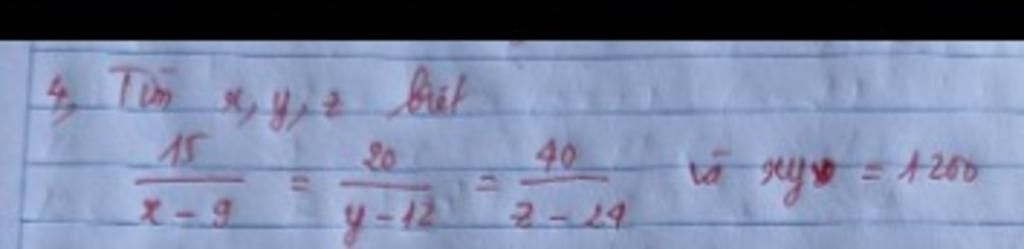 4, Tìm x, y, z biết
15/(x - 9) = 20/(y - 12) = 40/(z - 24) và xy = 1200